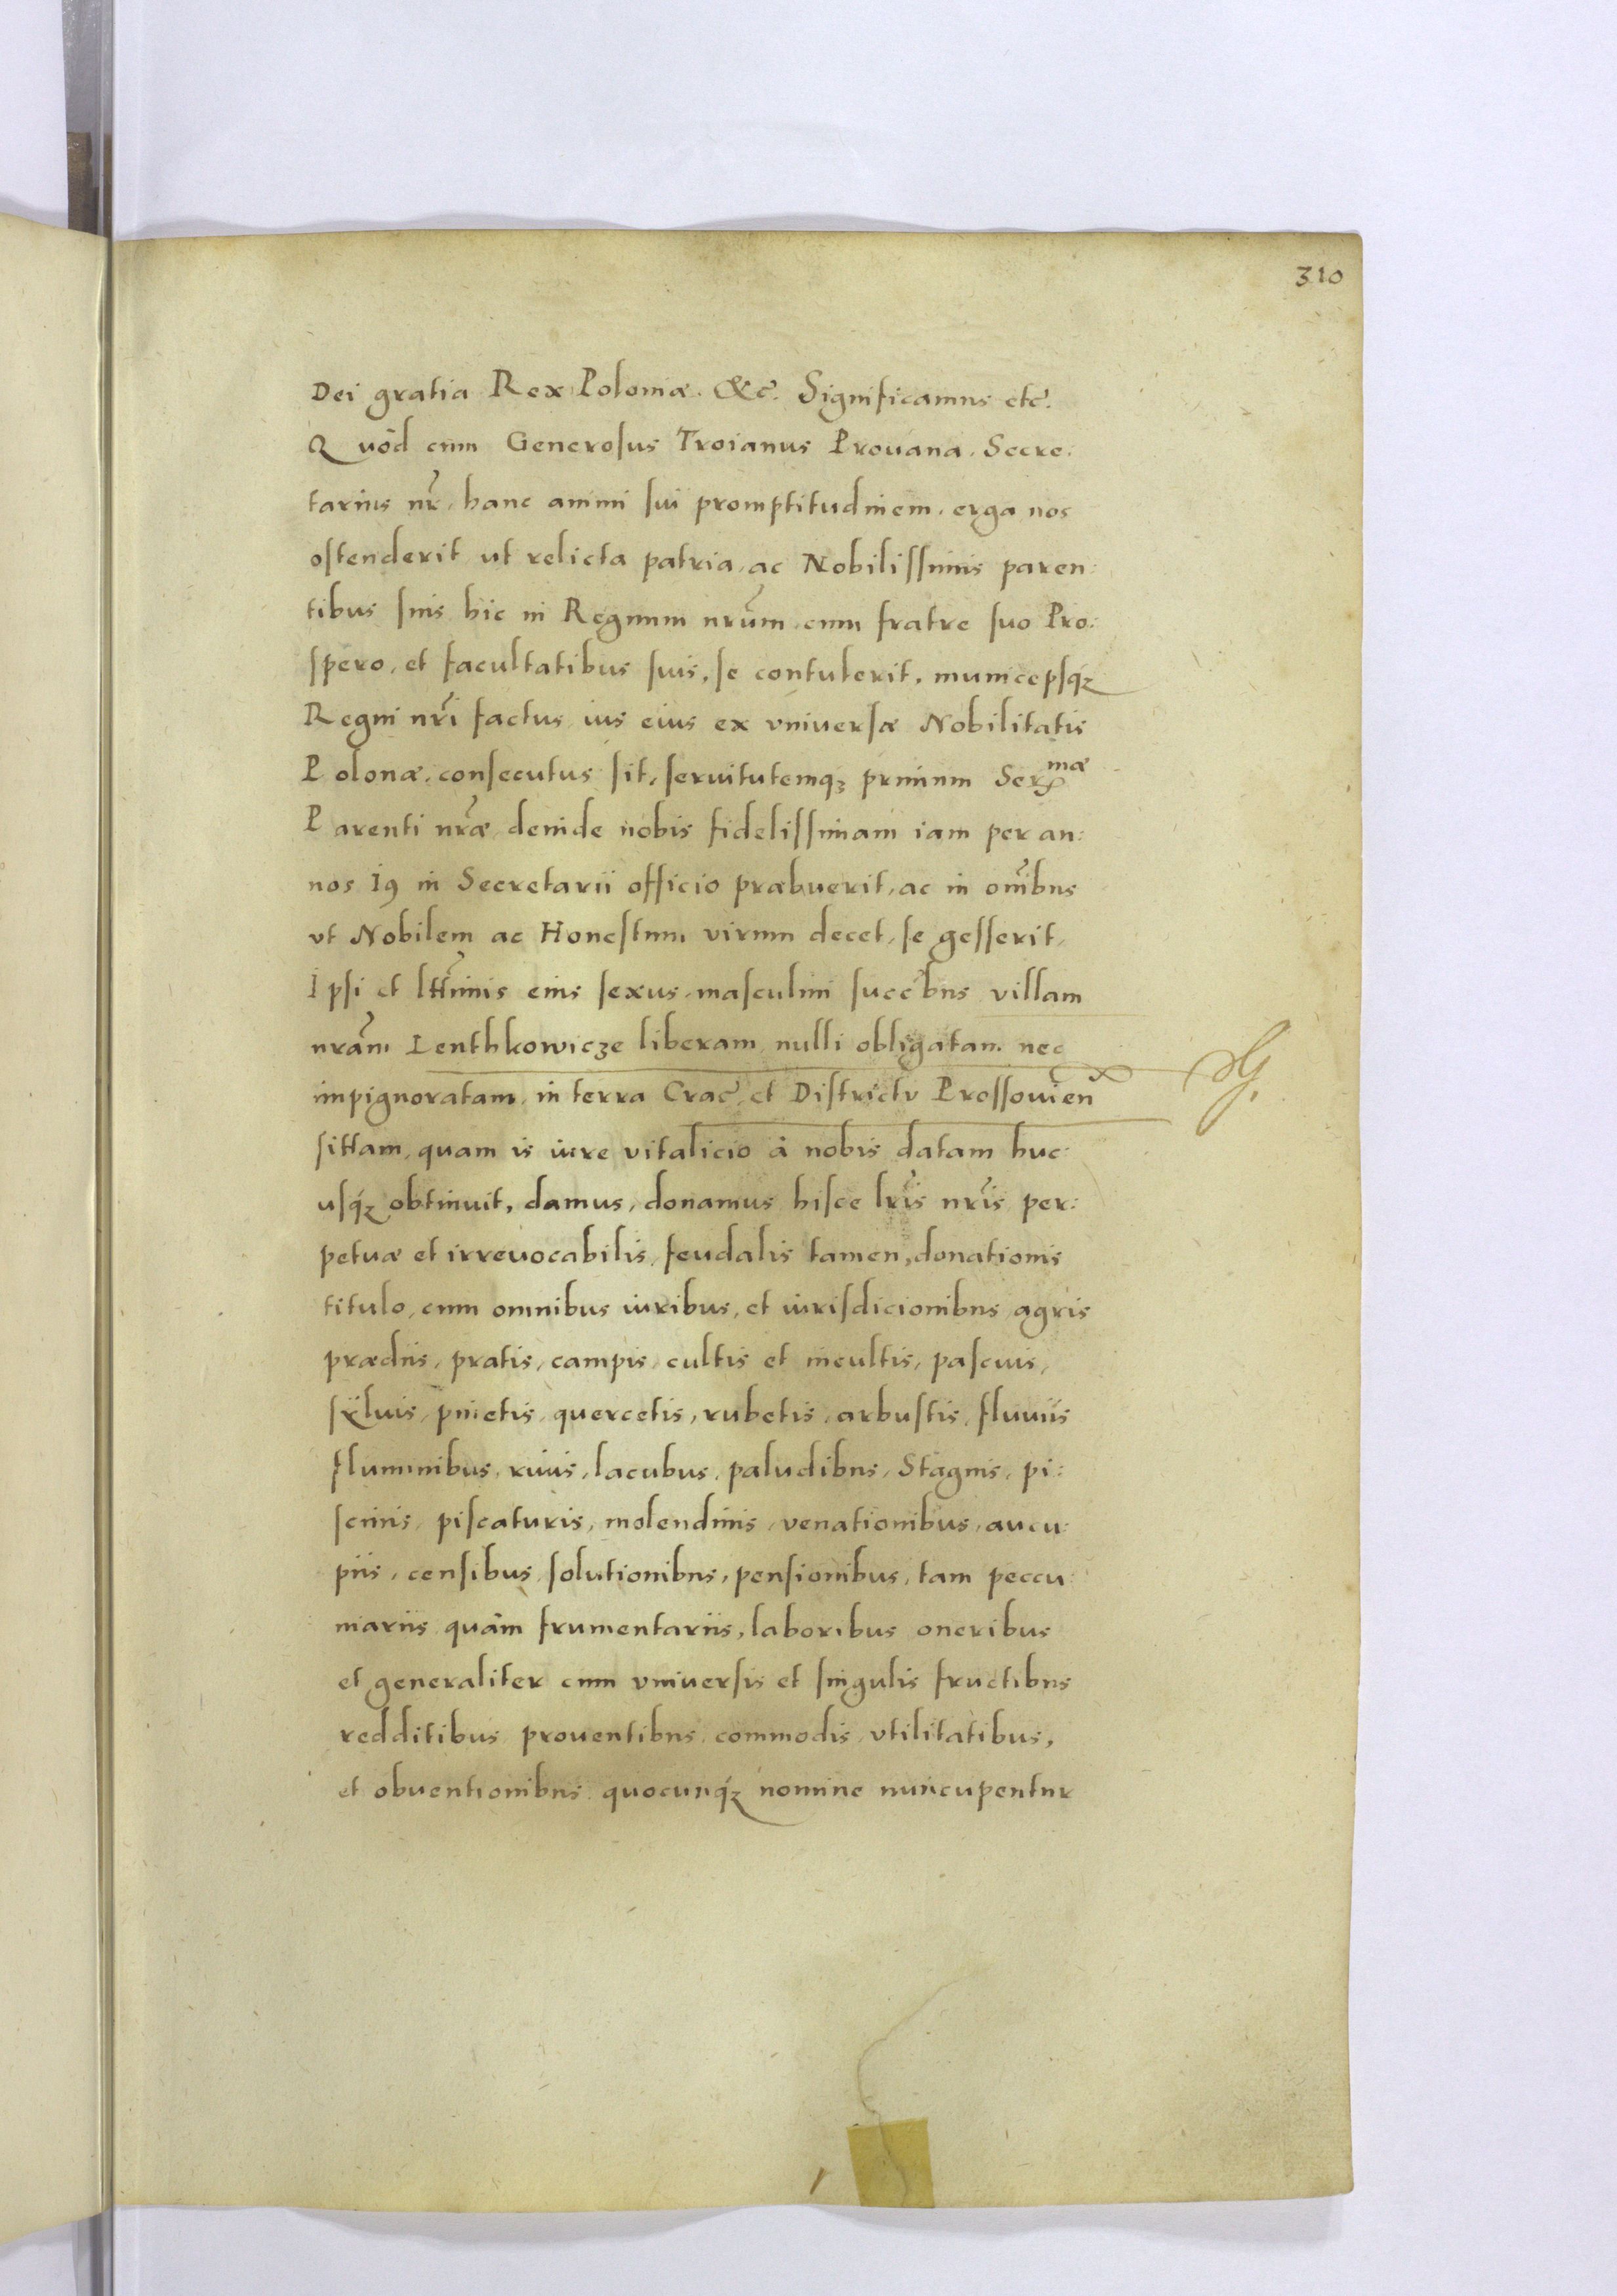 310
Dei gratia Rex Poloniæ. &c̃. Significamus etc̃.
Quòd cum Generosus Troianus Prouana. Secre:
tarius nr̃. hanc animi sui promptitudinem. erga nos
ostenderit ut relicta patria, ac Nobilissimis paren:
tibus suis hic in Regnum nrũm cum fratre suo Pro:
spero, et facultatibus suis, se contulerit, municepsq́ꝫ
Regni nr̃i factus ius eius ex vniuersæ Nobilitatis
Polonæ. consecutus sit, seruitutemqꝫ primum Ser^mæ
Parenti nr̃æ deinde nobis fidelissimam iam per an:
nos 19 in Secretarii officio præbuerit, ac in om̃ibus
vt Nobilem ac Honestum virum decet, se gesserit,
Ipsi et ltt̃imis eius sexus masculini succ̃bus villam
nrãm Ienthkowicze liberam nulli obligatam nec
impignoratam, in terra Crac̃. et Districtv Prossouien̄
sittam, quam is iure vitalicio à nobis datam huc:
usq́ꝫ obtinuit, damus, donamus hisce lr̃is nr̃is per:
petuæ et irreuocabilis, feudalis tamen, donationis
titulo, cum omnibus iuribus, et iurisdicionibus agris
prædiis, pratis, campis, cultis et incultis, pascuis,
sÿluis, pinetis, quercetis, rubetis, arbustis, fluuiis
fluminibus, riuis, lacubus, paludibus, Stagnis, pi:
scinis, piscaturis, molendinis, venationibus, aucu:
piis, censibus solutionibus, pensionibus, tam peccu:
niariis quàm frumentariis, laboribus oneribus
et generaliter cum vniuersis et singulis fructibus
redditibus prouentibus commodis vtilitatibus,
et obuentionibus quocunq́ꝫ nomine nuncupentur